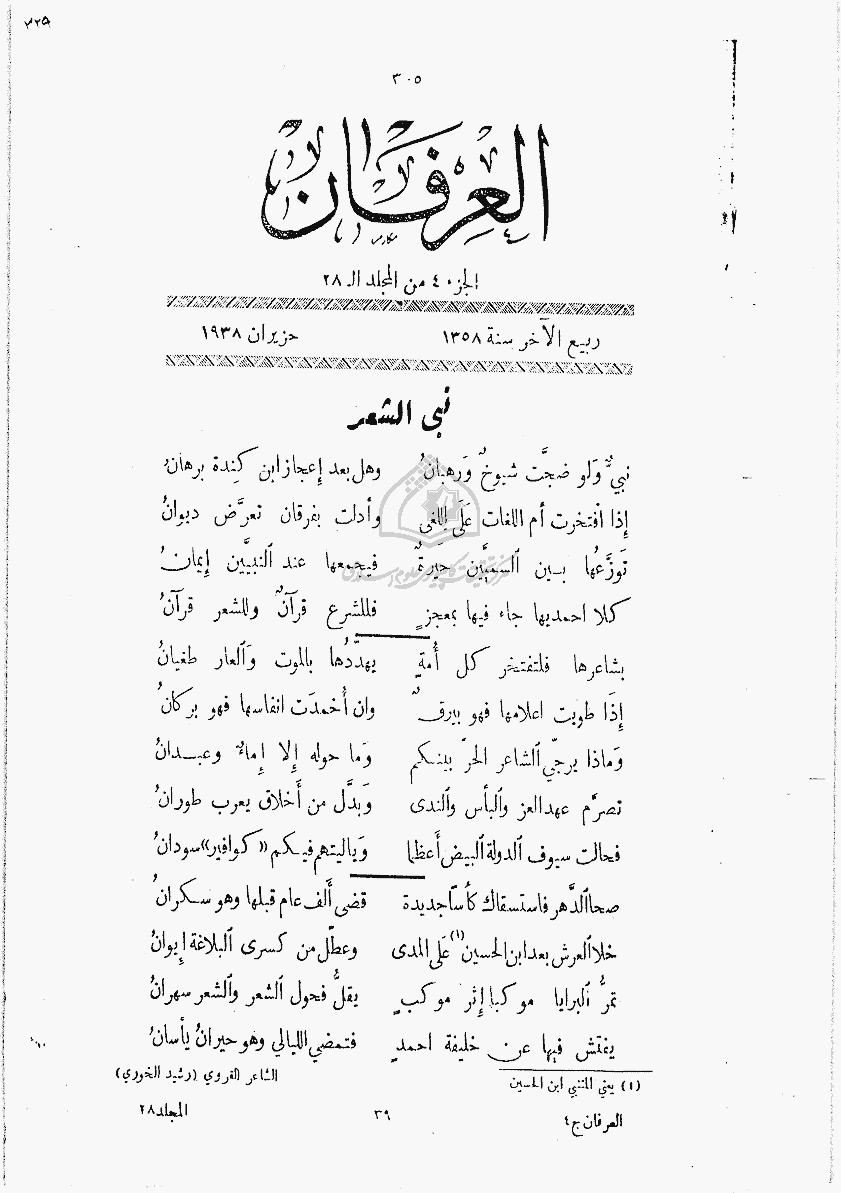 ٣٢٥
٣٠٥
العرفان
الجزء ٤ من المجلد الـ ٢٨
ربيع الآخر سنة ١٣٥٨ حزيران ١٩٣٨
نبي الشعر
نبيٌّ وَلو ضجَّت شيوخٌ وَرهبانُ وهل بعد إعجاز ابن كِندة برهانُ
إذا افتخرت أم اللغات عَلَى اللغى وأدلت بفرقان تعرَّض ديوانُ
تَوزَّعُها بين السميَّين حَيرةٌ فيجمعها عند النبيَّين إيمانُ
كلا احمديها جاء فيها بمعجزٍ فللشرع قرآنٌ وللشعر قرآنُ
بشاعرها فلتفتخر كل أُمةٍ يهدّدُها بالموت وَالعار طغيانُ
إذَا طويت اعلامها فهو بيرقٌ وان أُخمدَت انفاسها فهو بركانُ
وَماذا يرجّي الشاعر الحرّ بينكم وَما حوله إلا إماءٌ وعبدانُ
تصرَّم عهد العز والبأس والندى وَبدَّل من أَخلاق يعرب طورانُ
فحالت سيوف الدولة البيض أَعظما وَياليتهم فيكم «كوافير» سودانُ
صحا الدَّهر فاستسقاك كأسًا جديدة قضى أَلف عام قبلها وهو سكرانُ
خلا العرش بعد ابن الحسين (١) عَلَى المدى وعطّل من كسرى البلاغة إيوانُ
تمرُّ البرايا موكبا إثر موكبٍ يقلُّ فحول الشعر والشعر سهرانُ
يفتش فيها عن خليفة احمدٍ فتمضي الليالي وهو حيرانُ يأسانُ
الشاعر القروي (رشيد الخوري)
(١) يعني المتنبي ابن الحسين
العرفان ج٤ ٣٩ المجلد ٢٨